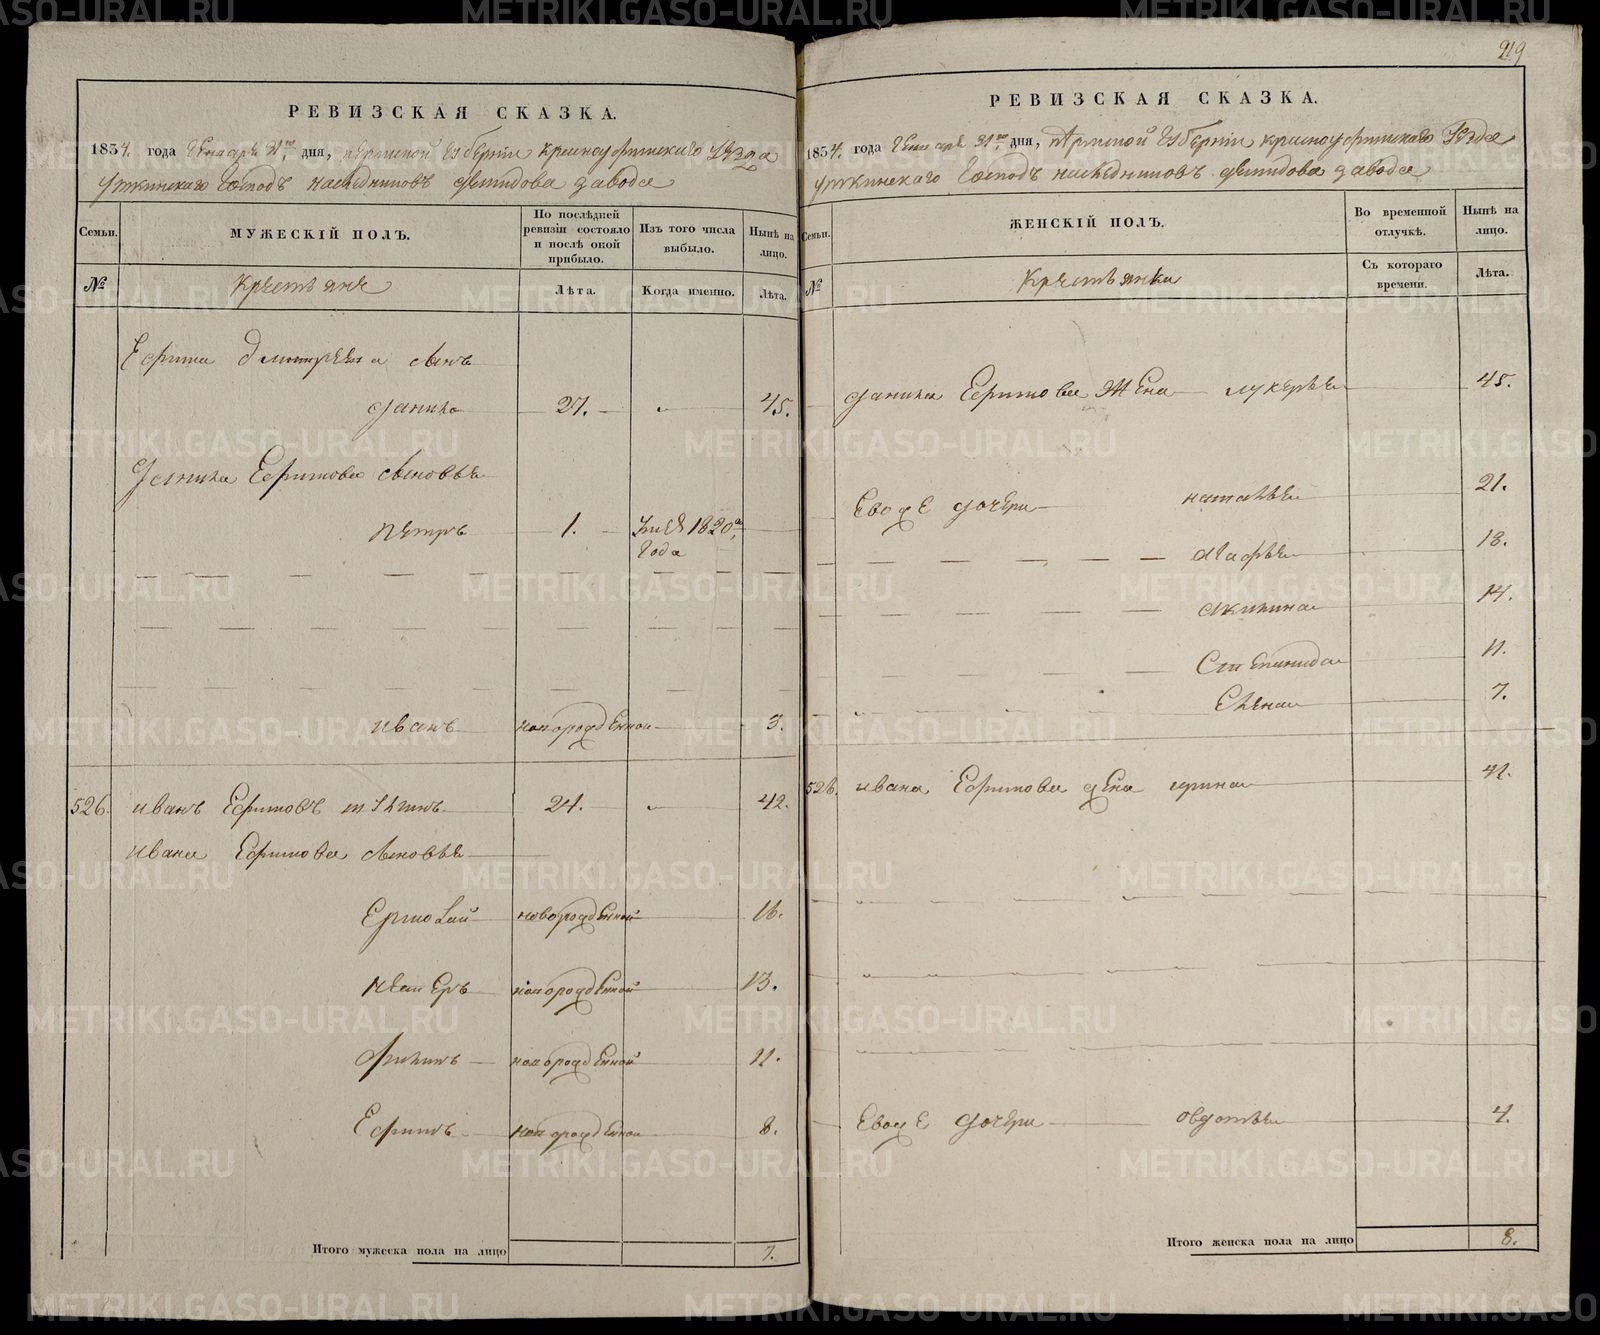 РЕВИЗСКАЯ СКАЗКА.
1854. года Генваря 31го дня, Пермской Губернии Красноуфимскаго Уезда
Уткинскаго Господъ наследниковъ Демидова завода
Семьи.
МУЖЕСКІЙ ПОЛЪ.
По послѣдней ревизіи состояло и послѣ оной прибыло.
Изъ того числа выбыло.
Нынѣ на лицо.
№
Крестьяне
Лѣта.
Когда именно.
Лѣта.
Ефима Дмитриева сынъ
Данила 27. 45.
Данила Ефимова сыновья
Петръ 1. 1820 года
Иванъ новорожденной 3.
526. Иванъ Ефимовъ 24. 42.
Ивана Ефимова сыновья
Ермолай новорожденной 16.
новорожденной 13.
Филипъ новорожденной 11.
Ефимъ новорожденной 8.
Итого мужеска пола на лицо 7.
219
РЕВИЗСКАЯ СКАЗКА.
1854. года Генваря 31го дня, Пермской Губернии Красноуфимскаго Уезда
Уткинскаго Господъ наследниковъ Демидова завода
Семьи.
ЖЕНСКІЙ ПОЛЪ.
Во временной отлучкѣ.
Нынѣ на лицо.
№
Крестьянки
Съ котораго времени.
Лѣта.
Данила Ефимова жена Лукерья 45.
Евоже дочери Наталья 21.
Агафья 18.
Акилина 14.
Степанида 11.
Елена 7.
526. Ивана Ефимова жена Ирина 41.
Евоже дочери Овдотья 4.
Итого женска пола на лицо 8.
METRIKI.GASO-URAL.RU